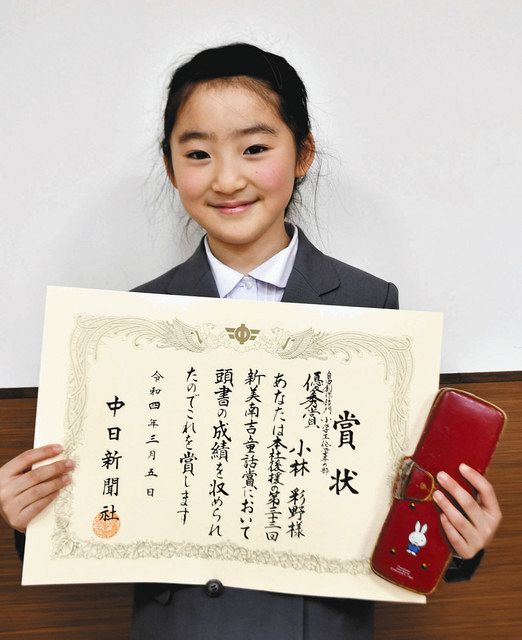 賞状
優秀賞
小林 彩野様
あなたは本社後援の第三十三回
新美南吉童話賞において
頭書の成績を収められ
たのでこれを賞します
令和四年三月五日
中日新聞社